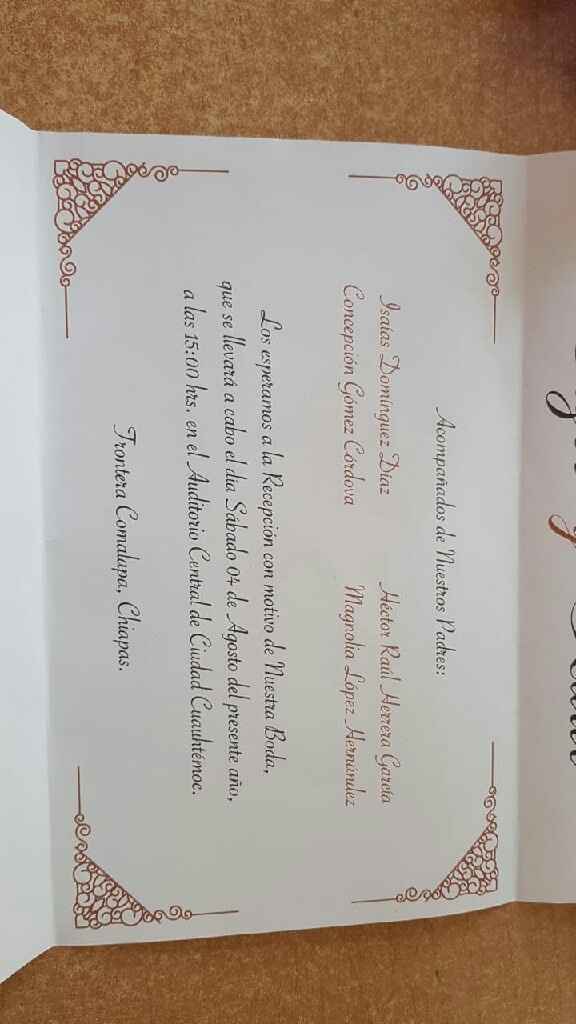 Acompañados de Nuestros Padres:
Isaías Domínguez Díaz
Concepción Gómez Córdova
Héctor Raúl Herrera García
Magnolia López Hernández
Los esperamos a la Recepción con motivo de Nuestra Boda,
que se llevará a cabo el día Sábado 04 de Agosto del presente año,
a las 15:00 hrs. en el Auditorio Central de Ciudad Cuauhtémoc.
Frontera Comalapa, Chiapas.